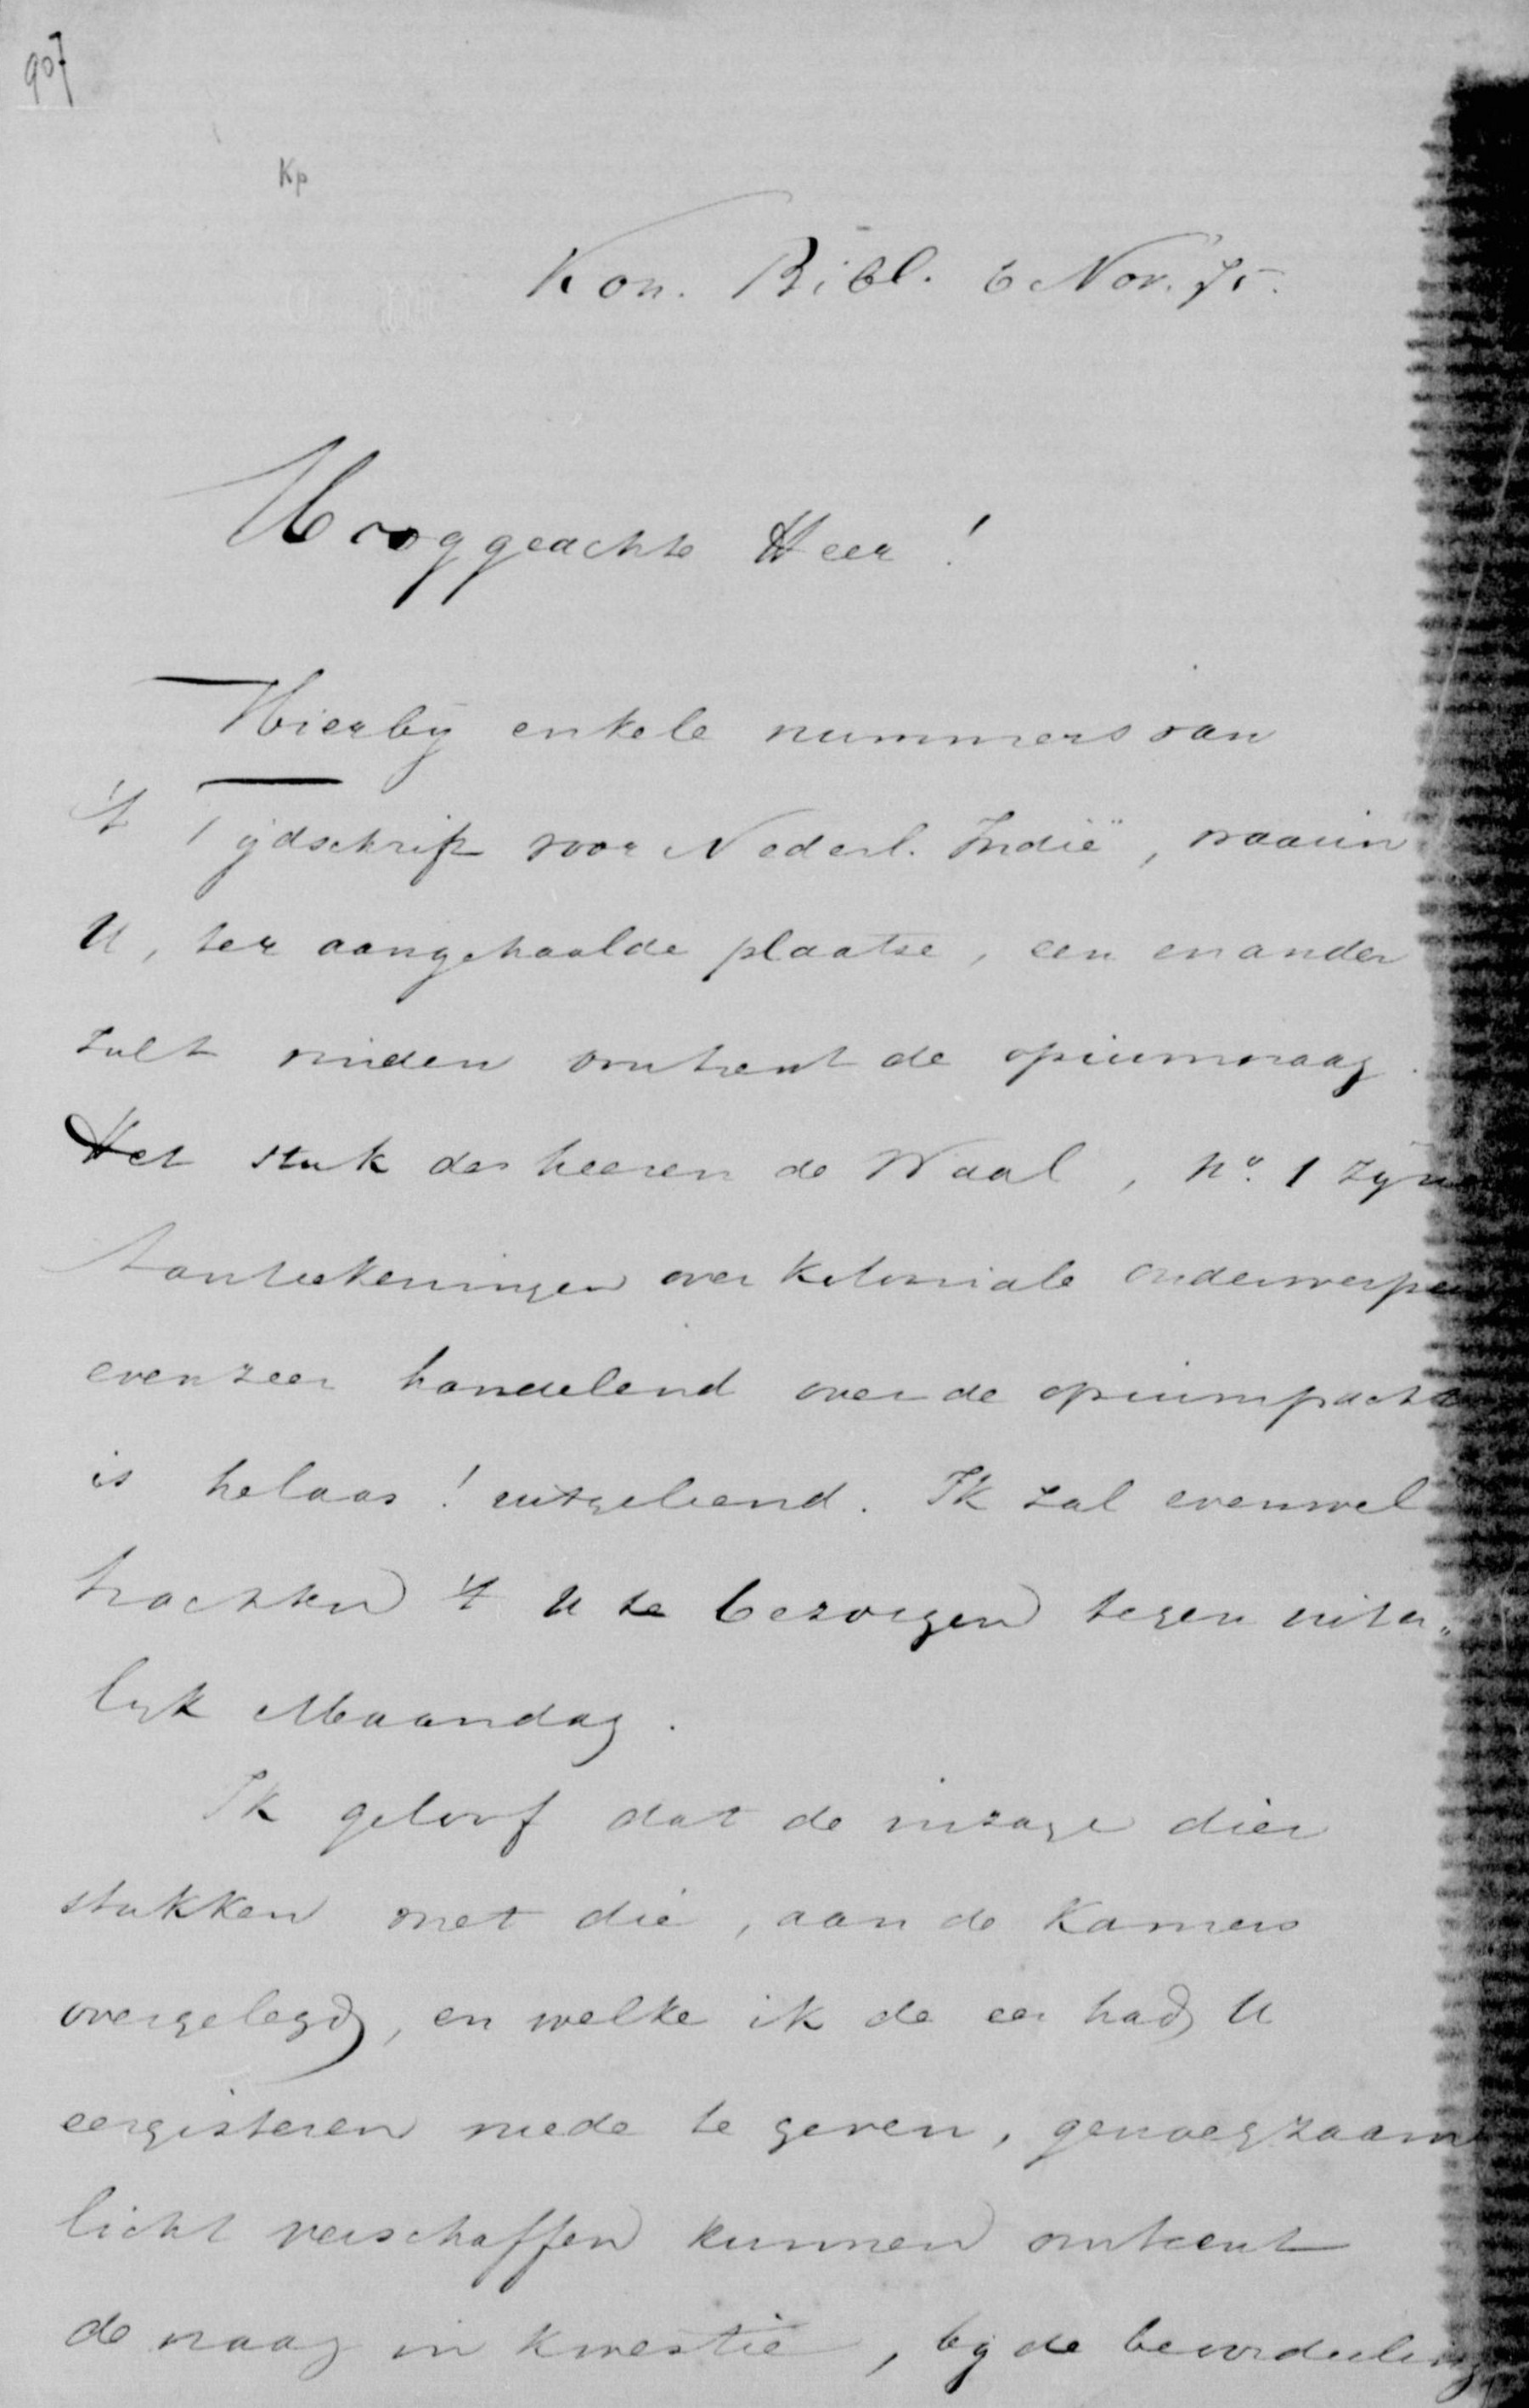 907
Kp
Kon. Bibl. 6 Nov. 75.
Hooggeachte Heer!
Hierbij enkele nummers van
't Tijdschrift voor Nederl. Indië, waarin
U, ter aangehaalde plaatse, een en ander
zult vinden omtrent de opiumvraag.
Het stuk des heeren de Waal, no. 1 zijn
Aanteekeningen over koloniale onderwerpen
evenzeer handelend over de opiumpacht
is helaas! uitgeleend. Ik zal evenwel
trachten 't U te bezorgen tegen uiter„
lijk Maandag.
Ik geloof dat de inzage dier
stukken met die, aan de Kamers
overgelegd, en welke ik de eer had U
eergisteren mede te geven, genoegzaam
licht verschaffen kunnen omtrent
de vraag in kwestie, bij de beoordeeling